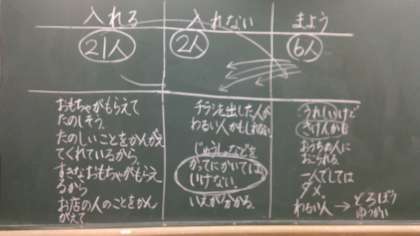 入れる
入れない
まよう
21人
2人
6人
おもちゃがもらえて
たのしそう。
たのしいことをかんが
えてくれているから。
すきなおもちゃがもらえ
るから
お店の人のことをかん
がえて
チラシを出した人が
わるい人かもしれない。
じゅうしょなどを
かってにかいては
いけない。
いえがわかる。
うれしいけど
さけ人かも
おうちの人に
おこられる。
一人でしては
ダメ
わるい人→どろぼう
ゆうかい